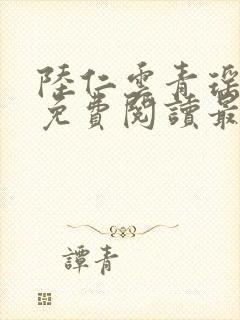 陸仁雲青瑶
免費閱讀最
譚青